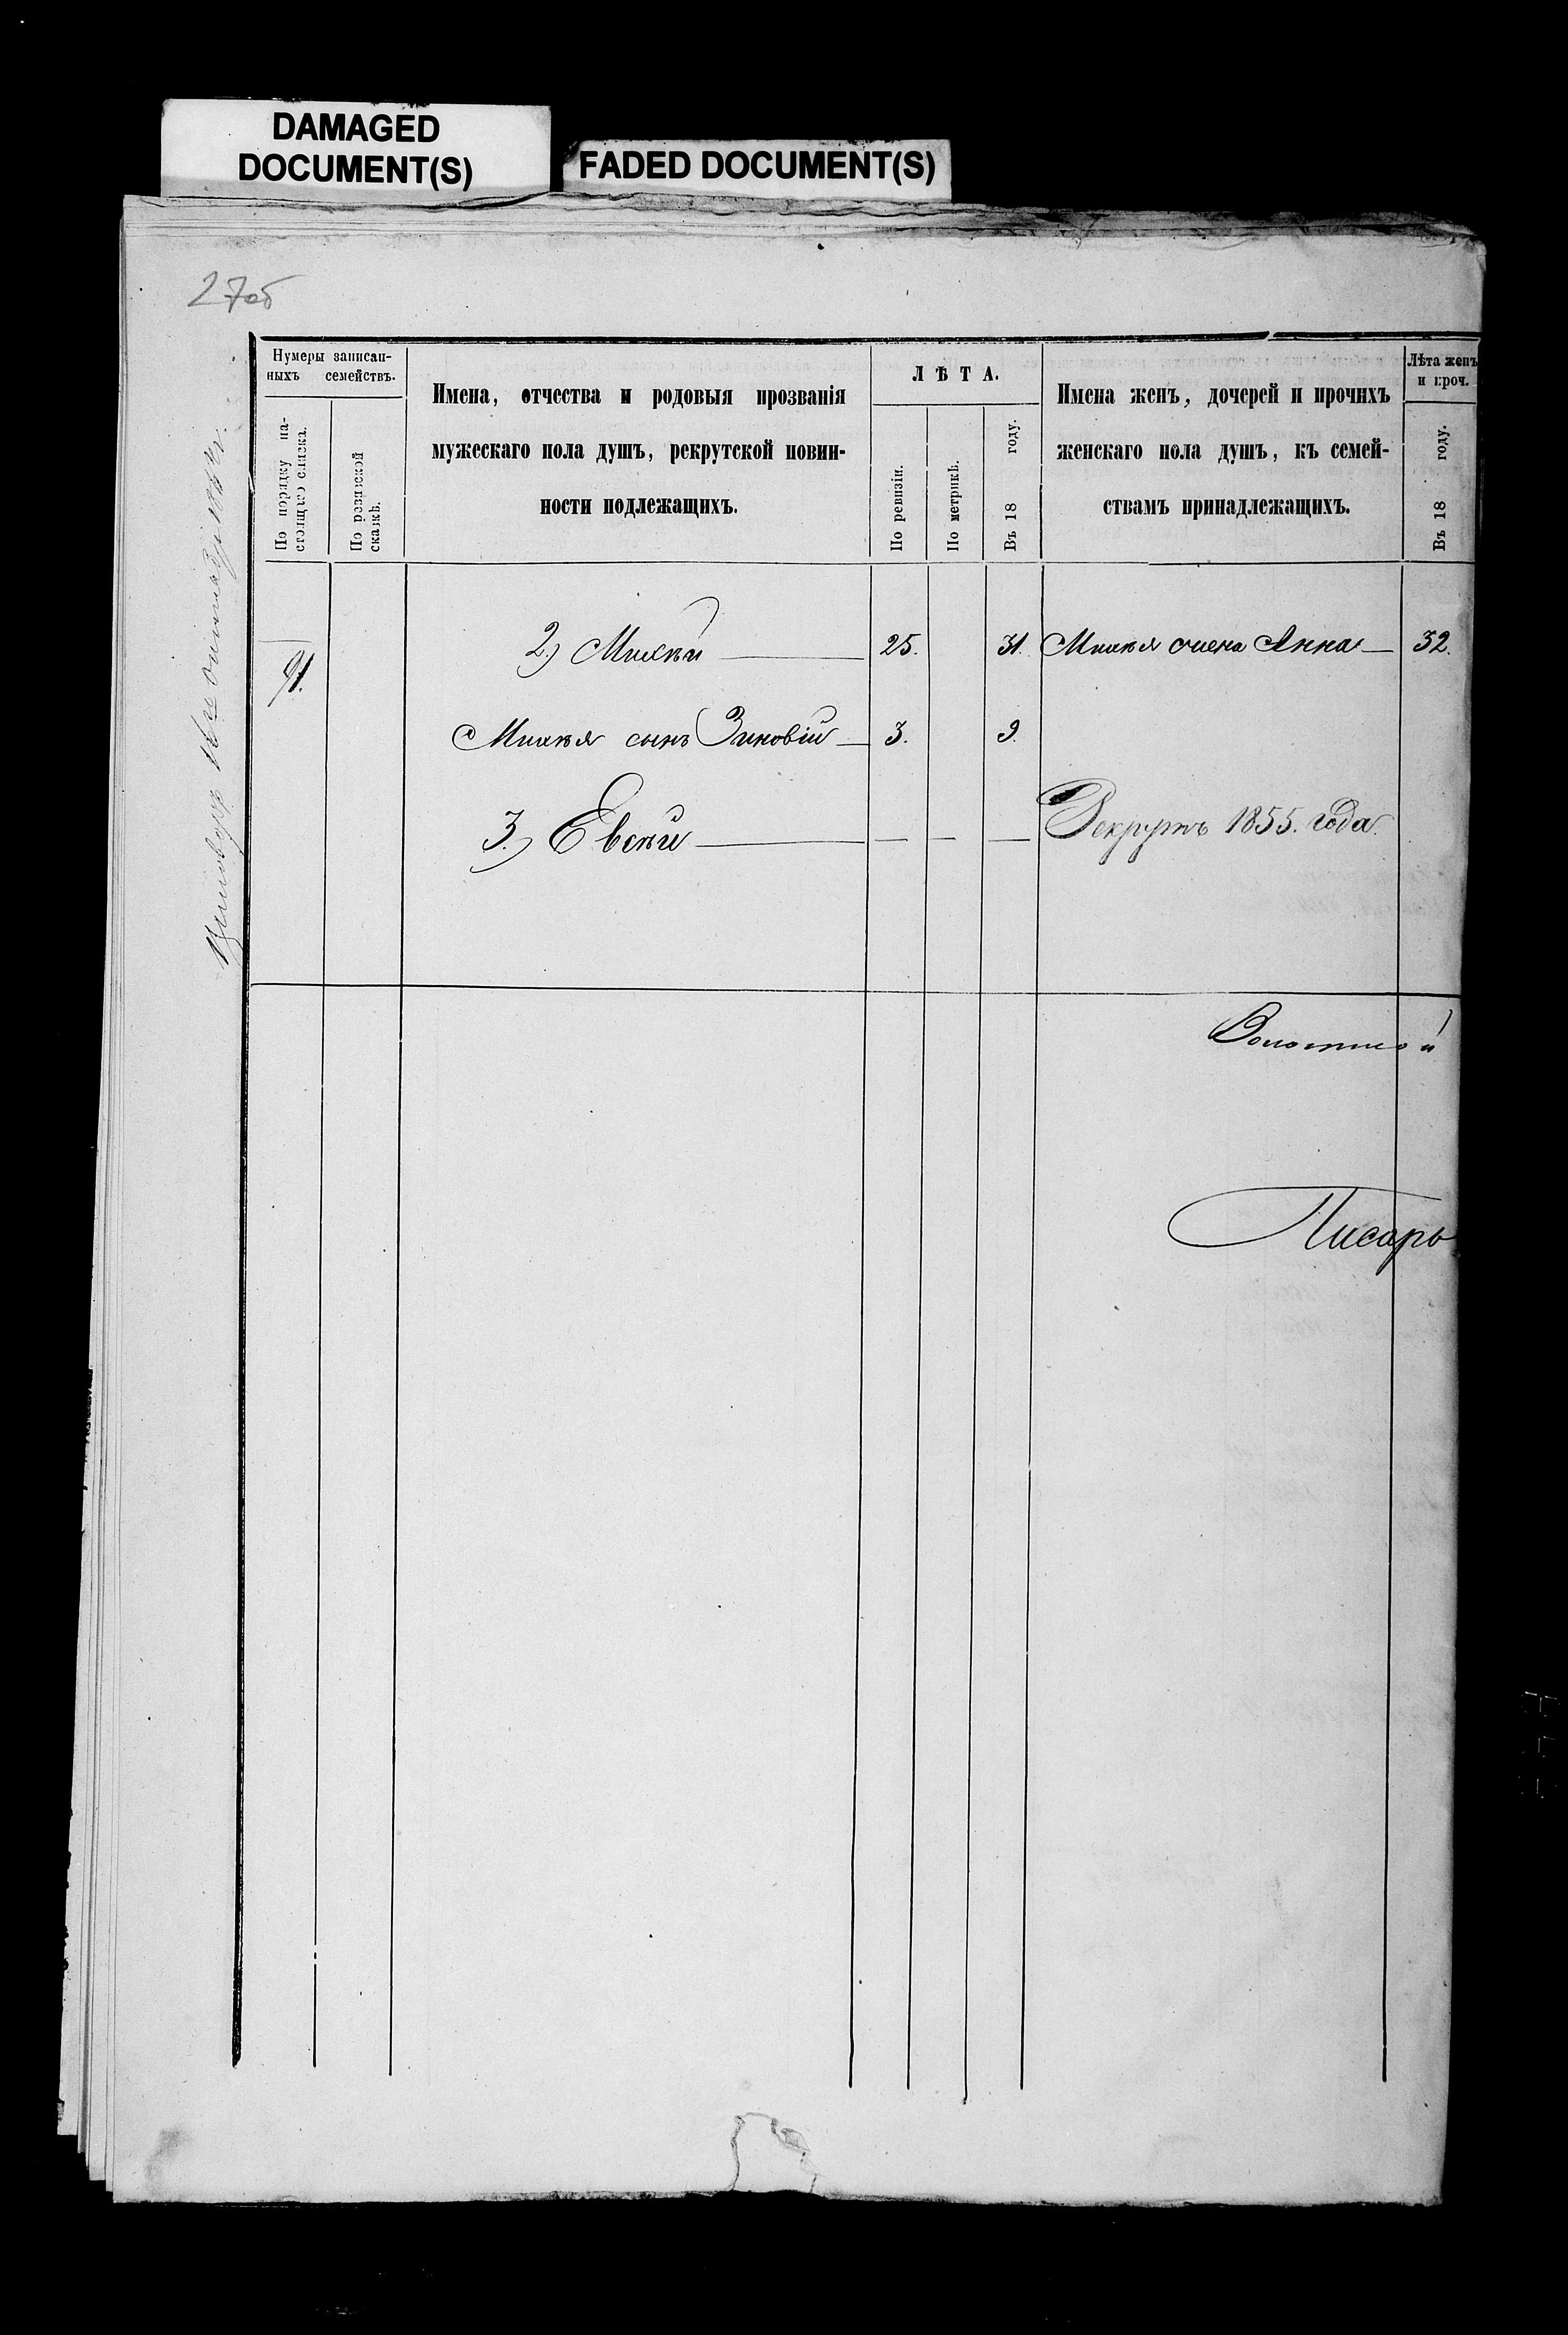 DAMAGED
DOCUMENT(S)
FADED DOCUMENT(S)
27об
Нумеры записан-
ныхъ семействъ.
По порядку на-
стоящаго списка.
По ревизской
сказкѣ.
Имена, отчества и родовыя прозванія
мужескаго пола душъ, рекрутской повин-
ности подлежащихъ.
ЛѢТА.
По ревизіи.
По метрикѣ.
Въ 18 году.
Имена женъ, дочерей и прочихъ
женскаго пола душъ, къ семей-
ствамъ принадлежащихъ.
Лѣта женъ
и проч.
Въ 18 году.
91.
2.) Михѣй 25. 31. Михѣя жена Анна 32.
Михѣя сынъ Зиновій 3. 9.
3.) Евсѣй Рекрутъ 1855. года.
Волостной
Писарь